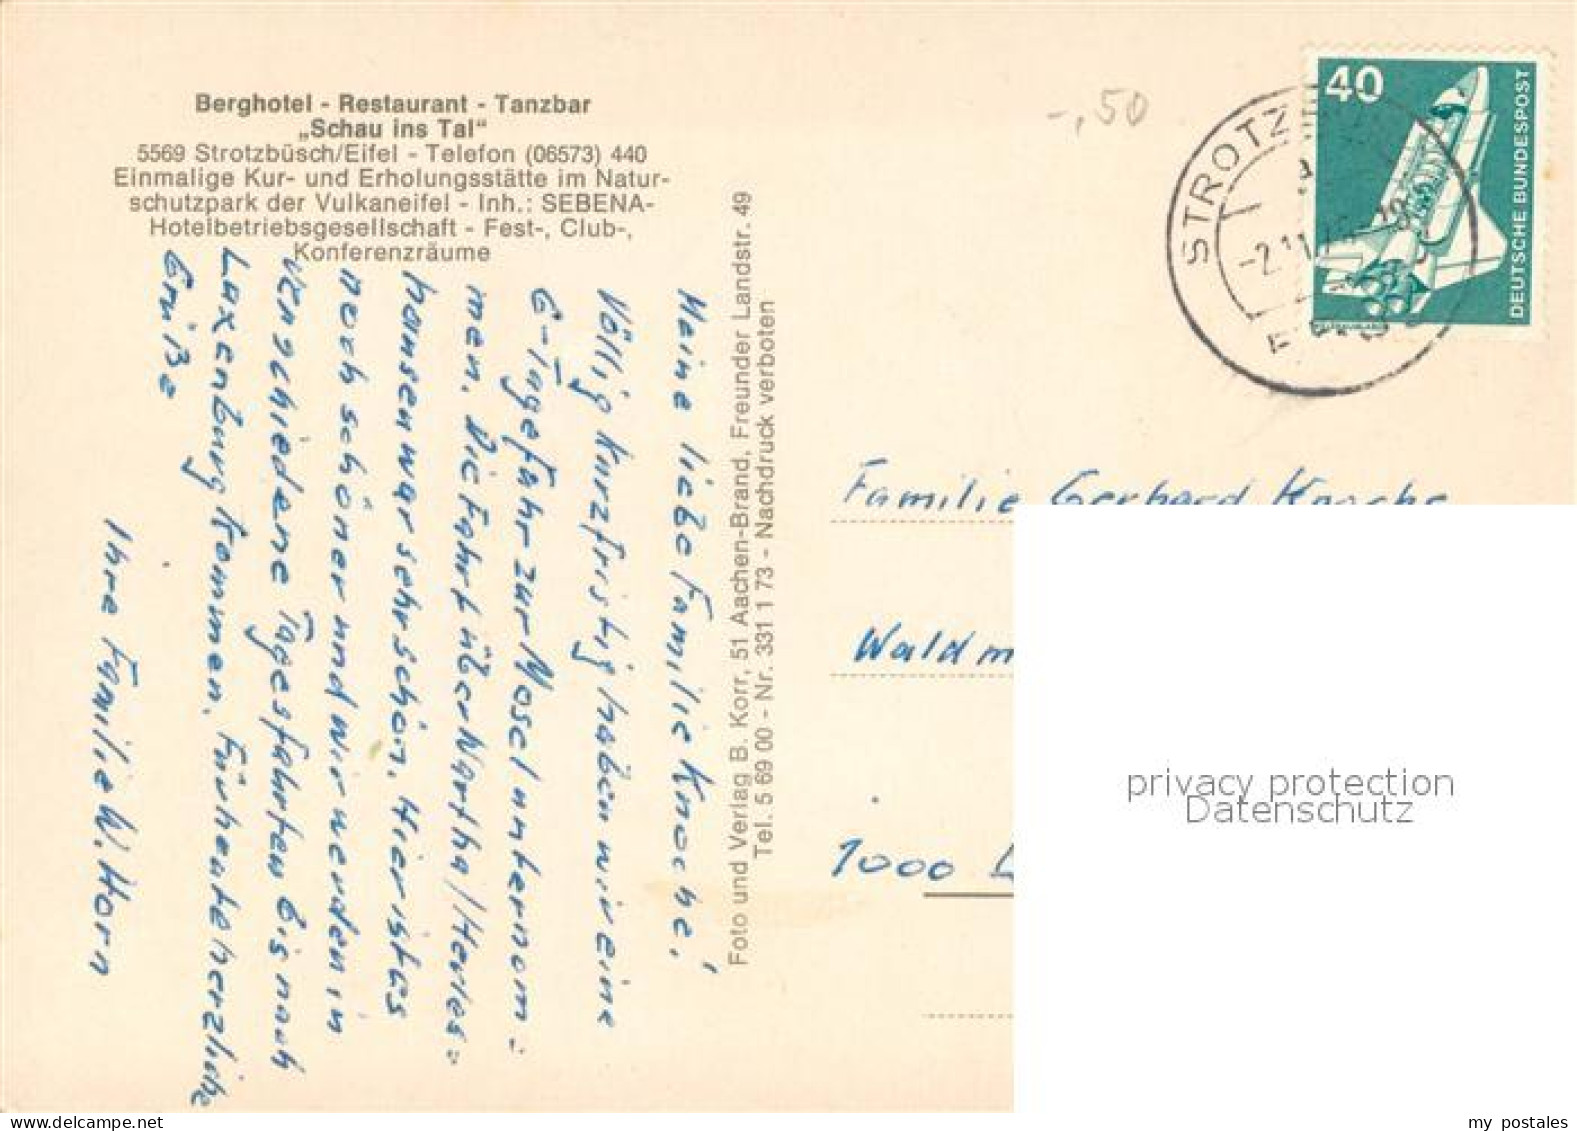 Berghotel - Restaurant - Tanzbar
„Schau ins Tal“
5569 Strotzbüsch/Eifel - Telefon (06573) 440
Einmalige Kur- und Erholungsstätte im Natur-
schutzpark der Vulkaneifel - Inh.: SEBENA-
Hotelbetriebsgesellschaft - Fest-, Club-,
Konferenzräume
Meine liebe Familie Knoche!
Völlig kurzfristig haben wir eine
6-Tagefahr zur Mosel unternom=
men. Die Fahrt über Wartha/Herles=
hausen war sehr schön. Hier ist es
noch schöner und wir werden in
verschiedene Tagesfahrten bis nach
Laxenburg kommen. Für heute herzliche
Grüße
Ihre Familie W. Horn
Foto und Verlag B. Korr, 51 Aachen-Brand, Freunder Landstr. 49
Tel. 5 69 00 - Nr. 331 1 73 - Nachdruck verboten
-,50
STROTZ
-2.11.
40
DEUTSCHE BUNDESPOST
Familie Gerhard Knoche
Waldm
1000
privacy protection
Datenschutz
delcampe.net
my_postales